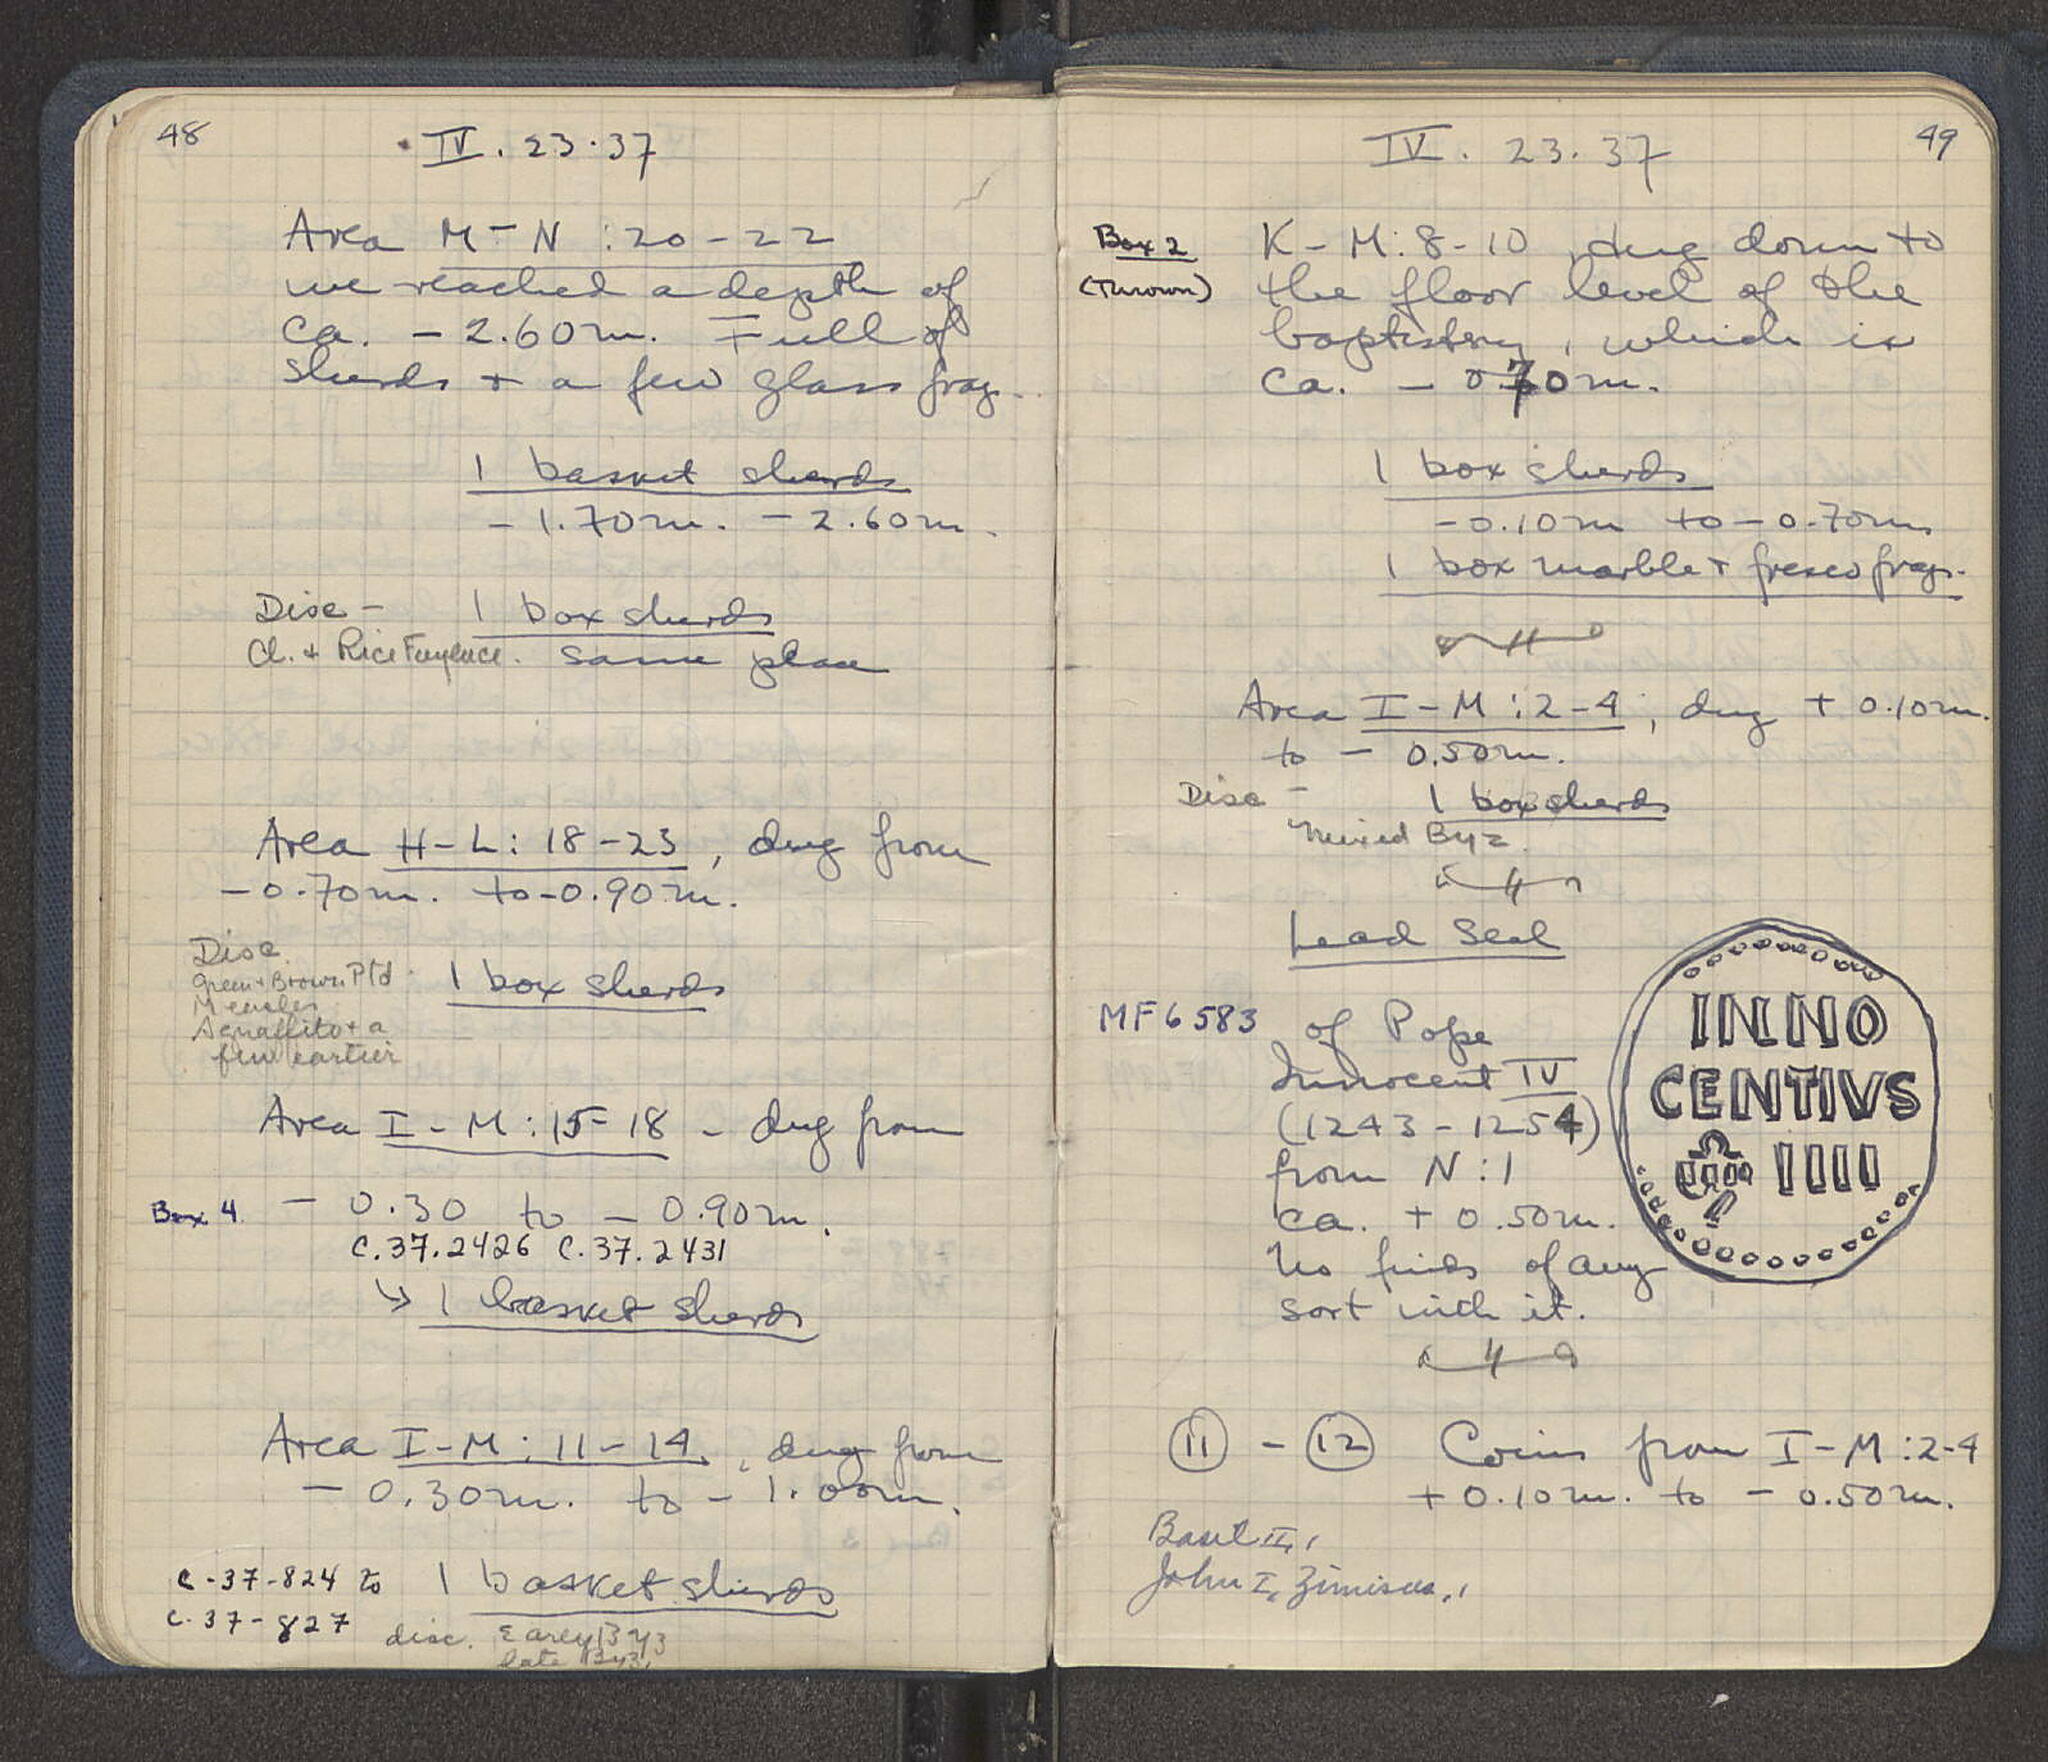 48
IV. 23.37
Area M-N :20-22
we reached a depth of
ca. - 2.60m. Full of
sherds + a few glass frags.
1 basket sherds
- 1.70m. - 2.60m.
Disc - 1 box sherds
Cl. + Rice Fayence. same place
Area H-L: 18-23, dug from
-0.70m. to -0.90m.
Disc.
Green + Brown Ptd
Measles
Sgraffito + a
few earlier
1 box sherds
Area I-M:15-18 - dug from
Box 4 - 0.30 to - 0.90m.
C.37.2426 C.37.2431
↳ 1 basket sherds
Area I-M: 11-14, dug from
- 0.30m. to - 1.00m.
C-37-824 to 1 basket sherds
C.37-827 disc. Early Byz
late Byz.
49
IV. 23.37
Box 2 K-M:8-10, dug down to
(Thrown) the floor level of the
baptistery, which is
ca. - 0.70m.
1 box sherds
-0.10m to -0.70m
1 box marble + fresco frags.
Area I-M:2-4, dug + 0.10m.
to - 0.50m.
Disc - 1 box sherds
Mixed Byz.
Lead Seal
MF6583 of Pope
Innocent IV
(1243-1254)
from N:1
ca. + 0.50m.
No finds of any
sort with it.
INNO
CENTIVS
IIII
11 - 12 Coins from I-M:2-4
+0.10m. to - 0.50m.
Basil II, 1
John I, Zimisces, 1